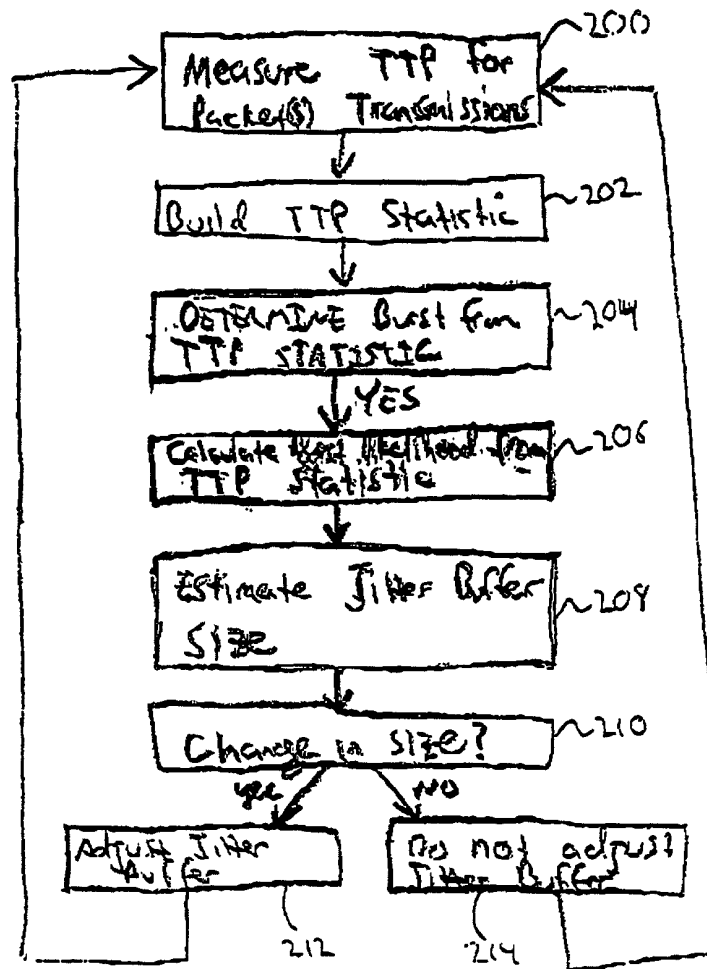 200
Measure TTP for
Packet(s) Transmissions
202
Build TTP Statistic
204
DETERMINE Burst from
TTP STATISTIC
YES
206
Calculate likelihood from
TTP Statistic
Estimate Jitter Buffer
208
Size
210
Change in size?
yes
NO
Adjust Jitter
Buffer
Do not adjust
Jitter Buffer
212
214